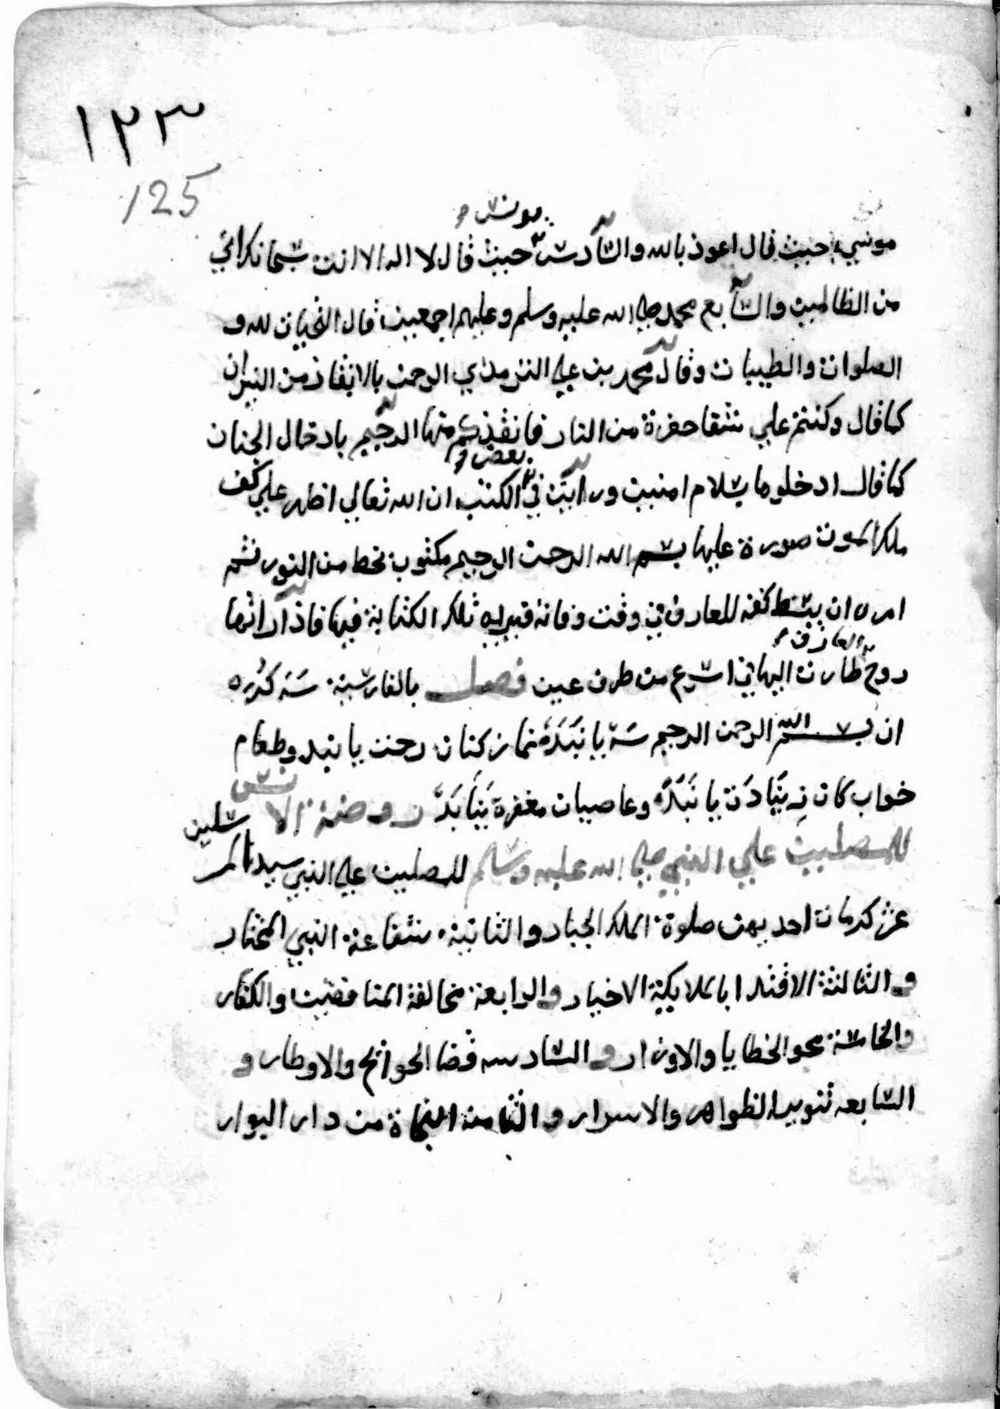 ١٢٣
125
يونس
موسي حين قال اعوذ بالله والسادس حين قال لا اله الا انت سبحانك اني
من الظالمين والسابع محمد صلي الله عليه وسلم وعليهم اجمعين قال التحيات لله و
الصلوات والطيبات وقال محمد بن علي الترمذي الرحمن بالانقاذ من النيران
كما قال وكنتم علي شفا حفرة من النار فانقذكم منها الرحيم بادخال الجنان
بعض
كما قال ادخلوها بسلام امنين ورايت في الكتب ان الله تعالي اظهر علي كف
ملك الموت صورة عليها بسم الله الرحمن الرحيم مكتوب بخط من النور ثم
امره ان يبسط كفه للعارف في وقت وفاته فيريه تلك الكتابة فيها فاذا راتها
العارف
روح طارت اليها في اسرع من طرف عين فصل بالفارسية سه كروه
ان بسم الله الرحمن الرحيم سه يا نبده نماز كنان رحمت يا نبد وطعام
خواب كان يا نبده وعاصيان مغفرة روضة الانس
للمصلين علي النبي صلي الله عليه وسلم للمصلين علي النبي سيد المرسلين
عشر كرمات احديهن صلوة الملك الجبار والثانية شفاعة النبي المختار
والثالثة الاقتدا بالملايكة الاخيار والرابعة مخالفة المنافقين والكفار
والخامسة محو الخطايا والاوزار والسادسه قضا الحوائج والاوطار و
السابعه تنوير الظواهر والاسرار والثامنة النجاة من دار البوار